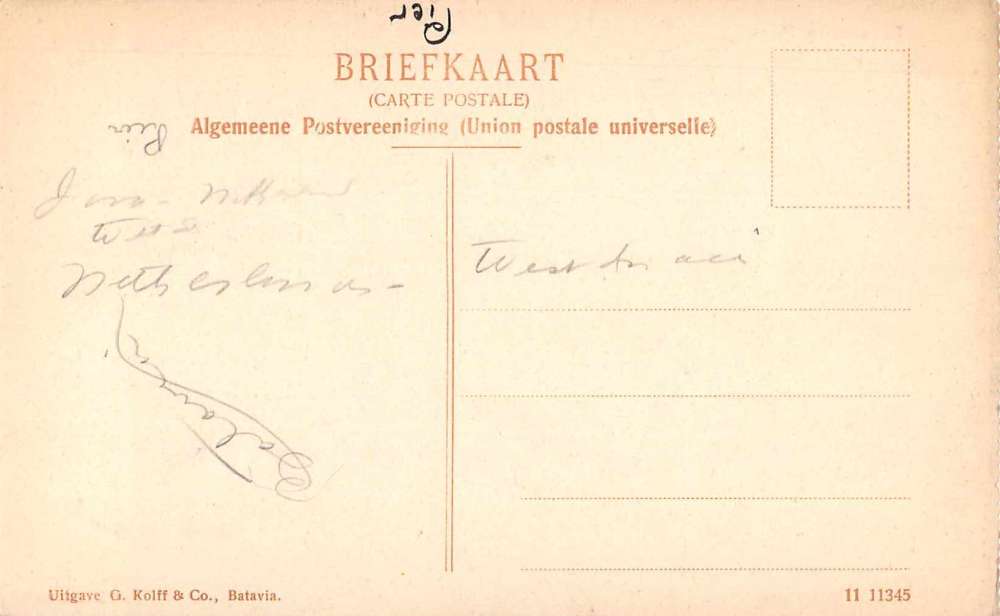 Pier
BRIEFKAART
(CARTE POSTALE)
Algemeene Postvereeniging (Union postale universelle)
Pier
Java -
Netherlands -
West
Batavia
Uitgave G. Kolff & Co., Batavia.
11 11345